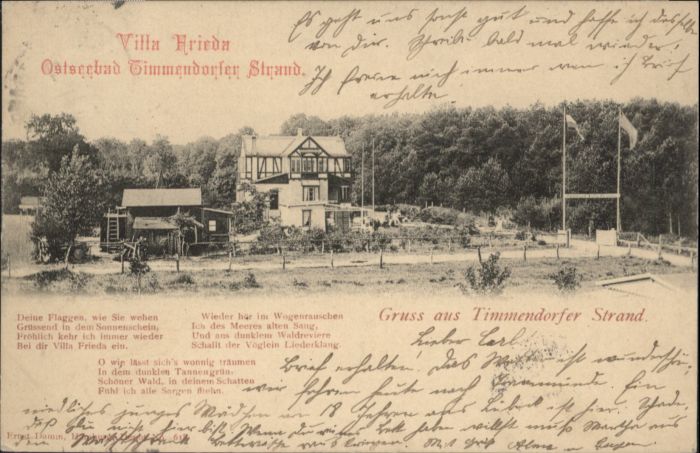 Villa Frieda
Ostseebad Timmendorfer Strand.
Es geht uns sonst gut und hoffe ich dasselbe
von dir. Schreib bald mal wieder,
Ich freue mich immer wenn ich Brief
erhalte.
Gruss aus Timmendorfer Strand.
Deine Flaggen, wie Sie wehen
Grüssend in dem Sonnenschein,
Fröhlich kehr ich immer wieder
Bei dir Villa Frieda ein.
Wieder hör im Wogenrauschen
Ich des Meeres alten Sang,
Und aus dunklem Waldreviere
Schallt der Vöglein Liederklang.
O wie lässt sich's wonnig träumen
In dem dunklen Tannengrün:
Schöner Wald, in deinem Schatten
Fühl ich alle Sorgen fliehn.
Lieber Carl!
Brief erhalten. Das ist wunderschön,
wir fahren heute nach Travemünde. Ein
niedliches junges Mädchen von 18 Jahren aus Lübeck ist hier. Schade
daß du nicht hier bist! Wenn du
Ernst Damm,